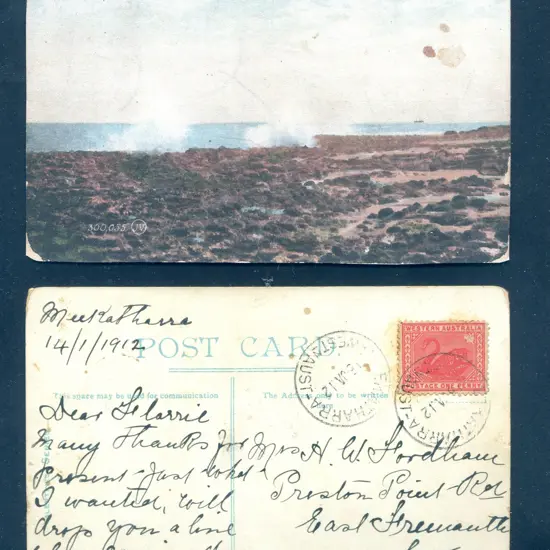 300,035 JV
Meekatharra
14/1/1912
POST CARD
WESTERN AUSTRALIA
POSTAGE ONE PENNY
This space may be used for communication
The Address only to be written
Dear Florrie
Many thanks for
present just what
I wanted, will
drop you a line
Mrs H. W. Fordham
Preston Point Rd
East Fremantle